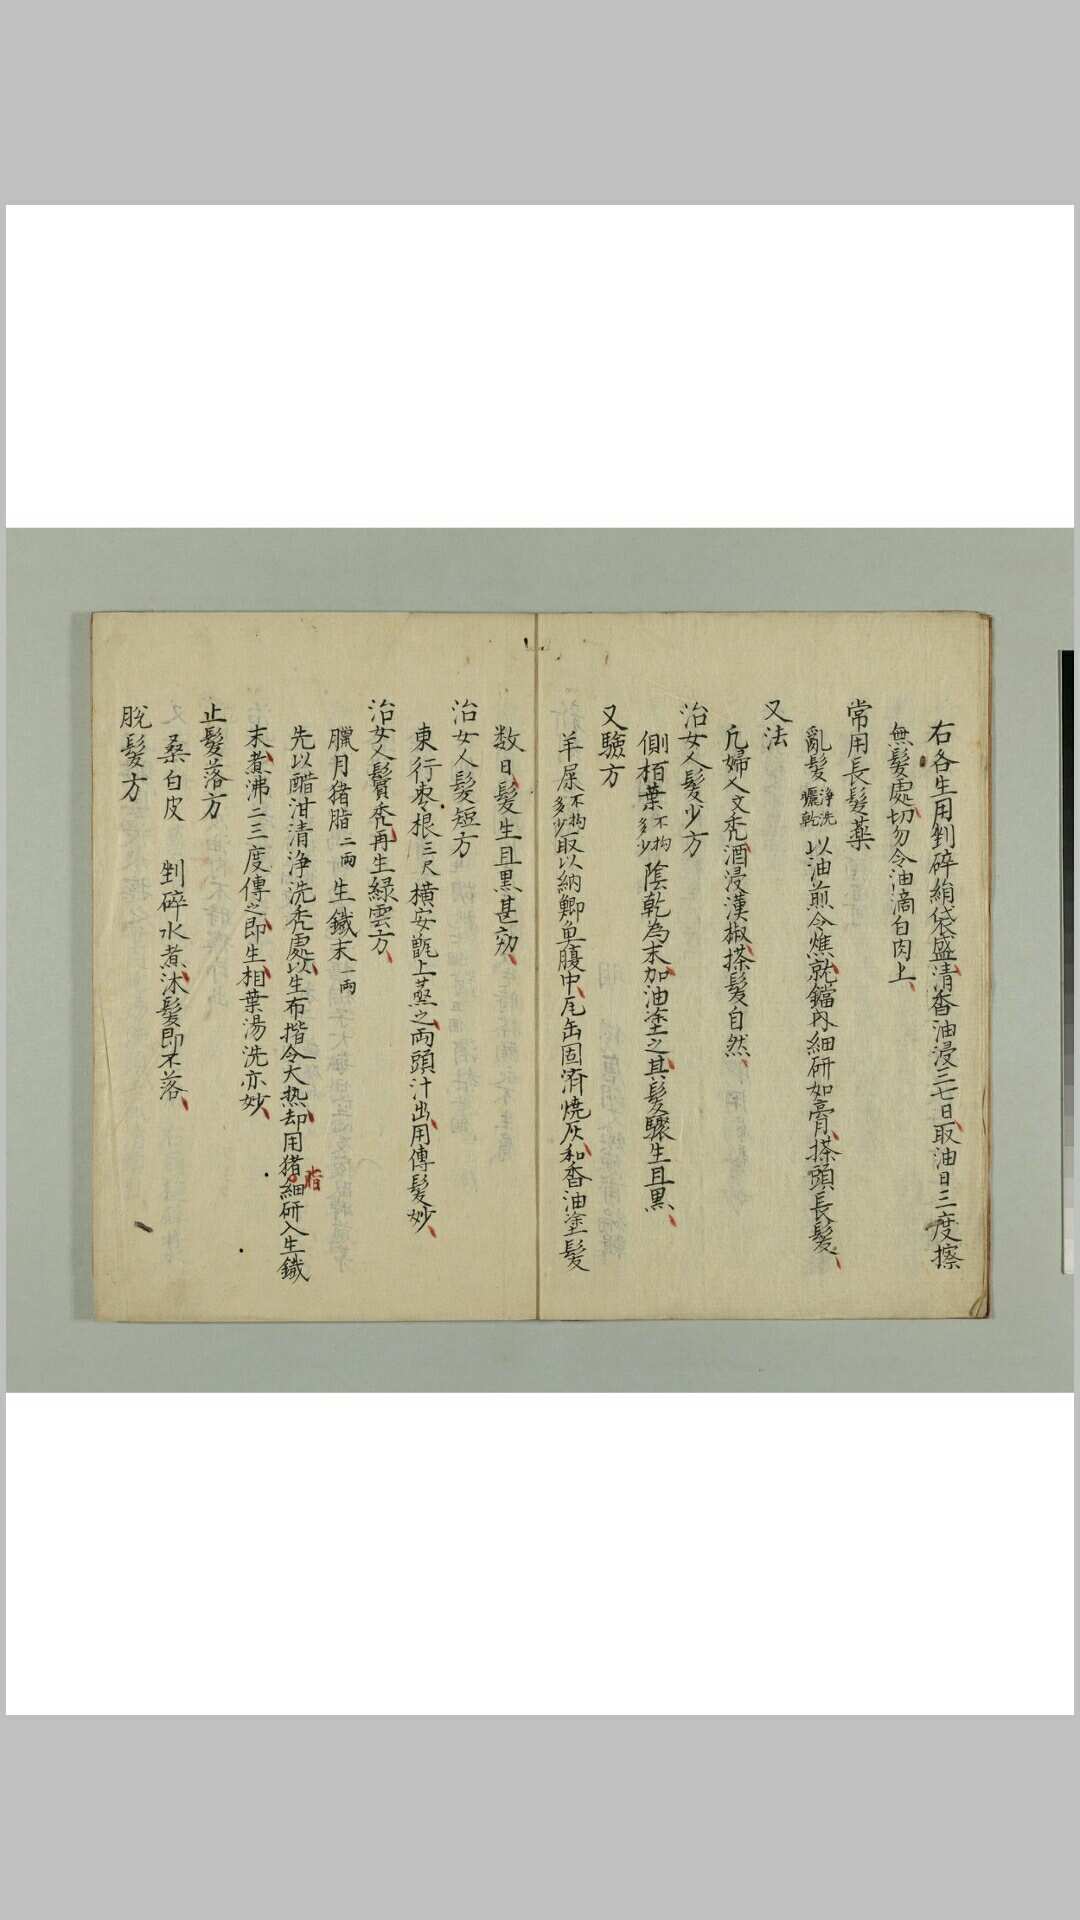 右各生用剉碎絹袋盛清香油浸三七日取油日三度擦
無髮處切勿令油滴白肉上
常用長髮藥
亂髮淨洗曬乾以油煎令焦就鐺內細研如膏搽頭長髮
又法
凡婦人文禿酒浸漢椒搽髮自然
治女人髮少方
側栢葉不拘多少陰乾為末加油塗之其髮驟生且黑
又驗方
羊屎不拘多少取以納鯽魚腹中瓦缶固濟燒灰和香油塗髮
数日髮生且黒甚効
治女人髮短方
東行枣根三尺橫安甑上蒸之両頭汁出用傅髮妙
治女人鬢禿再生緑雲方
臘月猪脂二両生鐵末一両
先以醋泔清浄洗禿處以生布揩令大热却用猪脂細研入生鐵
末煮沸二三度傅之即生相葉湯洗亦妙
止髮落方
桑白皮 剉碎水煮沐髮即不落
脫髮方